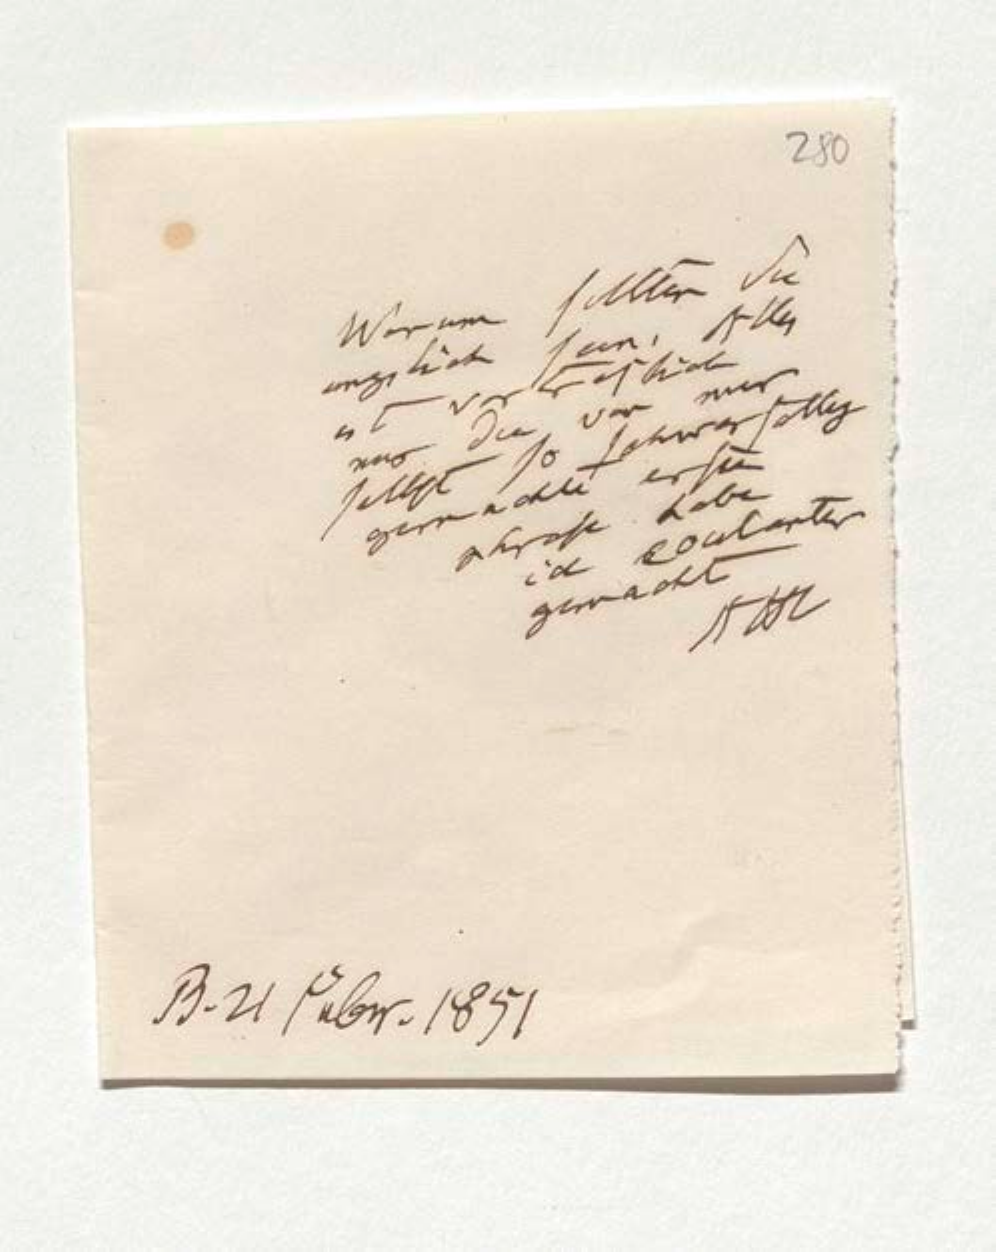 280
Warum sollten Sie
ängstlich sein. Alles
ist vortreflich
nur die von mir
selbst so schwerfällig
gemachte erste
phrase habe
ich coulanter
gemacht
AHt
B. 21 Febr. 1851